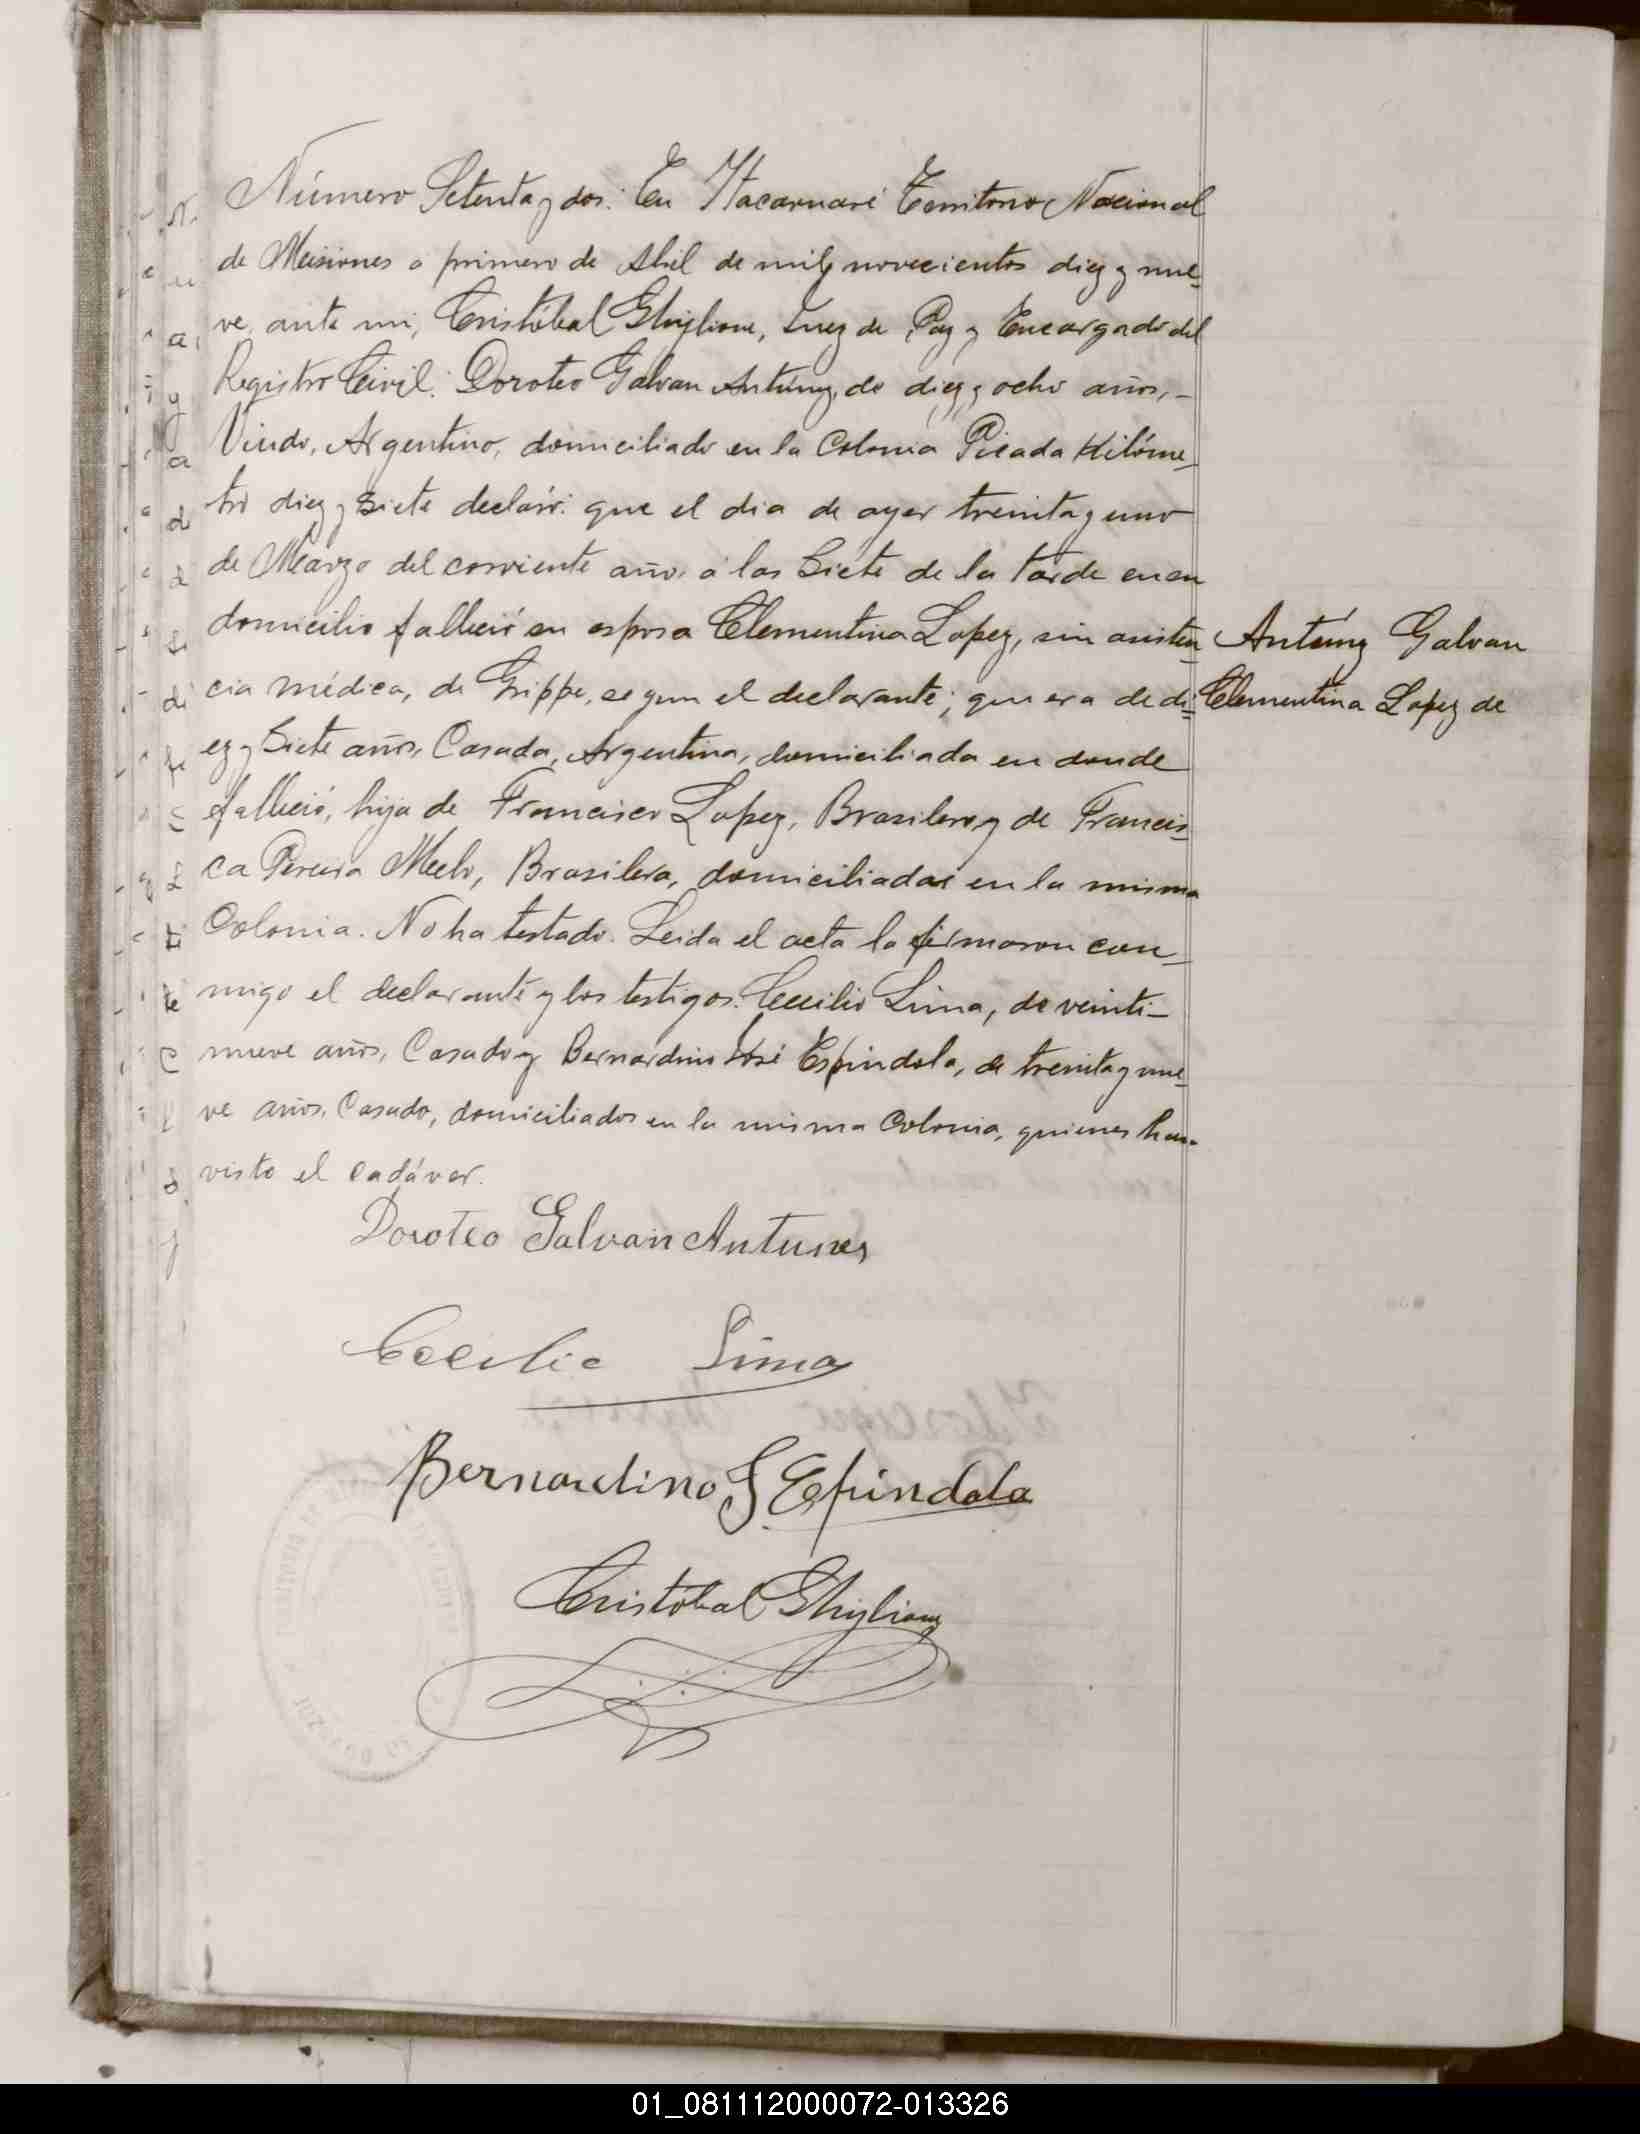 Número Setenta y dos: En Itacaruaré Territorio Nacional
de Misiones a primero de Abril de mil novecientos diez y nue-
ve, ante mi, Cristóbal Ghiglione, Juez de Paz y Encargado del
Registro Civil: Doroteo Galvan Antúnz, de diez y ocho años, -
Viudo, Argentino, domiciliado en la Colonia Picada Kilóme-
tro diez y siete declaró: que el dia de ayer treinta y uno
de Marzo del corriente año, a las Siete de la tarde en su
domicilio falleció su esposa Clementina Lopez, sin asisten-
cia médica, de Grippe, segun el declarante; que era de di-
ez y Siete años, Casada, Argentina, domiciliada en donde
falleció, hija de Francisco Lopez, Brasilero y de Francis-
ca Pereira Mello, Brasilera, domiciliados en la misma
Colonia. No ha testado. Leida el acta la firmaron con-
migo el declarante y los testigos: Cecilio Lima, de veinti-
nueve años, Casado y Bernardino José Espindola, de treinta y nue-
ve años, Casado, domiciliados en la misma Colonia, quienes han
visto el cadáver.
Antúnz Galvan
Clementina Lopez de
Doroteo Galvan Antunes
Cecilio Lima
Bernardino J Espindola
Cristóbal Ghiglione
01_081112000072-013326